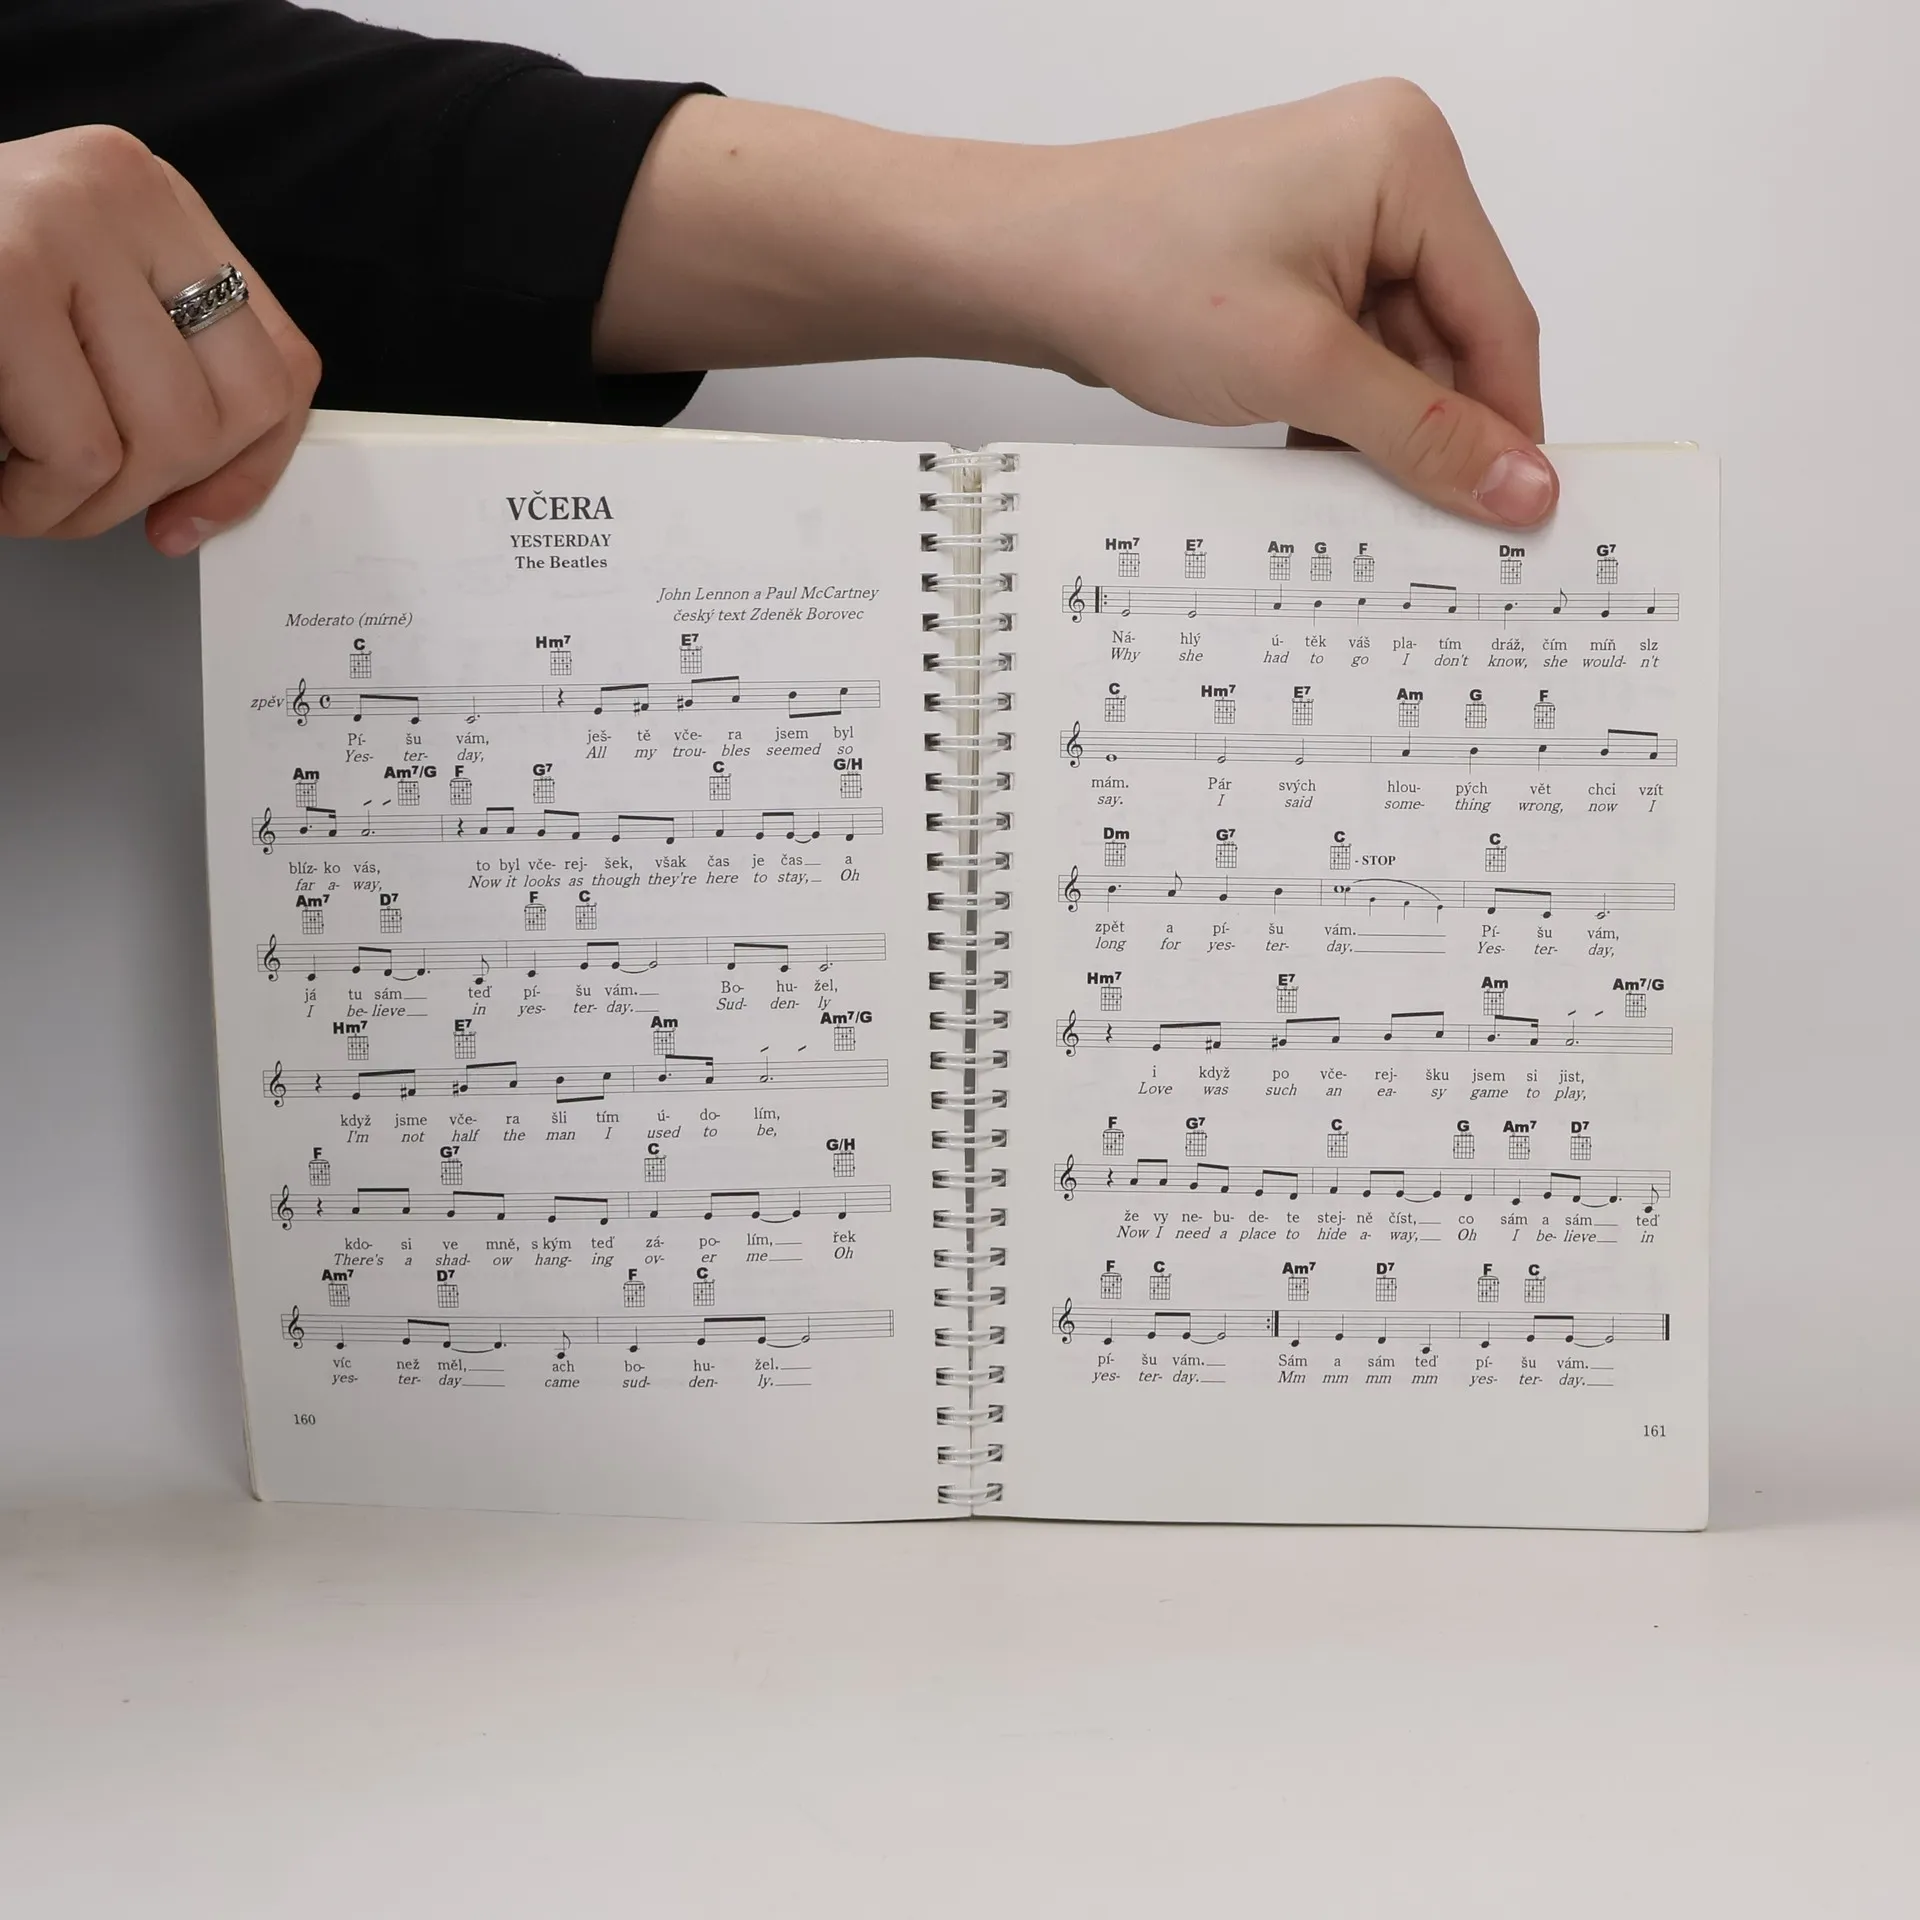 VČERA
YESTERDAY
The Beatles
John Lennon a Paul McCartney
český text Zdeněk Borovec
Moderato (mírně)
C Hm7 E7
zpěv
Pí- šu vám, ješ- tě vče- ra jsem byl
Yes- ter- day, All my trou- bles seemed so
Am Am7/G F G7 C G/H
blíz- ko vás, to byl vče- rej- šek, však čas je čas a
far a- way, Now it looks as though they're here to stay, Oh
Am7 D7 F C
já tu sám teď pí- šu vám. Bo- hu- žel,
I be- lieve in yes- ter- day. Sud- den- ly
Hm7 E7 Am Am7/G
když jsme vče- ra šli tím ú- do- lím,
I'm not half the man I used to be,
F G7 C G/H
kdo- si ve mně, s kým teď zá- po- lím, řek
There's a shad- ow hang- ing ov- er me Oh
Am7 D7 F C
víc než měl, ach bo- hu- žel.
yes- ter- day came sud- den- ly.
160
Hm7 E7 Am G F Dm G7
Ná- hlý ú- těk váš pla- tím dráž, čím míň slz
Why she had to go I don't know, she would- n't
C Hm7 E7 Am G F
mám. Pár svých hlou- pých vět chci vzít
say. I said some- thing wrong, now I
Dm G7 C - STOP C
zpět a pí- šu vám. Pí- šu vám,
long for yes- ter- day. Yes- ter- day,
Hm7 E7 Am Am7/G
i když po vče- rej- šku jsem si jist,
Love was such an ea- sy game to play,
F G7 C G Am7 D7
že vy ne- bu- de- te stej- ně číst, co sám a sám teď
Now I need a place to hide a- way, Oh I be- lieve in
F C Am7 D7 F C
pí- šu vám. Sám a sám teď pí- šu vám.
yes- ter- day. Mm mm mm mm yes- ter- day.
161